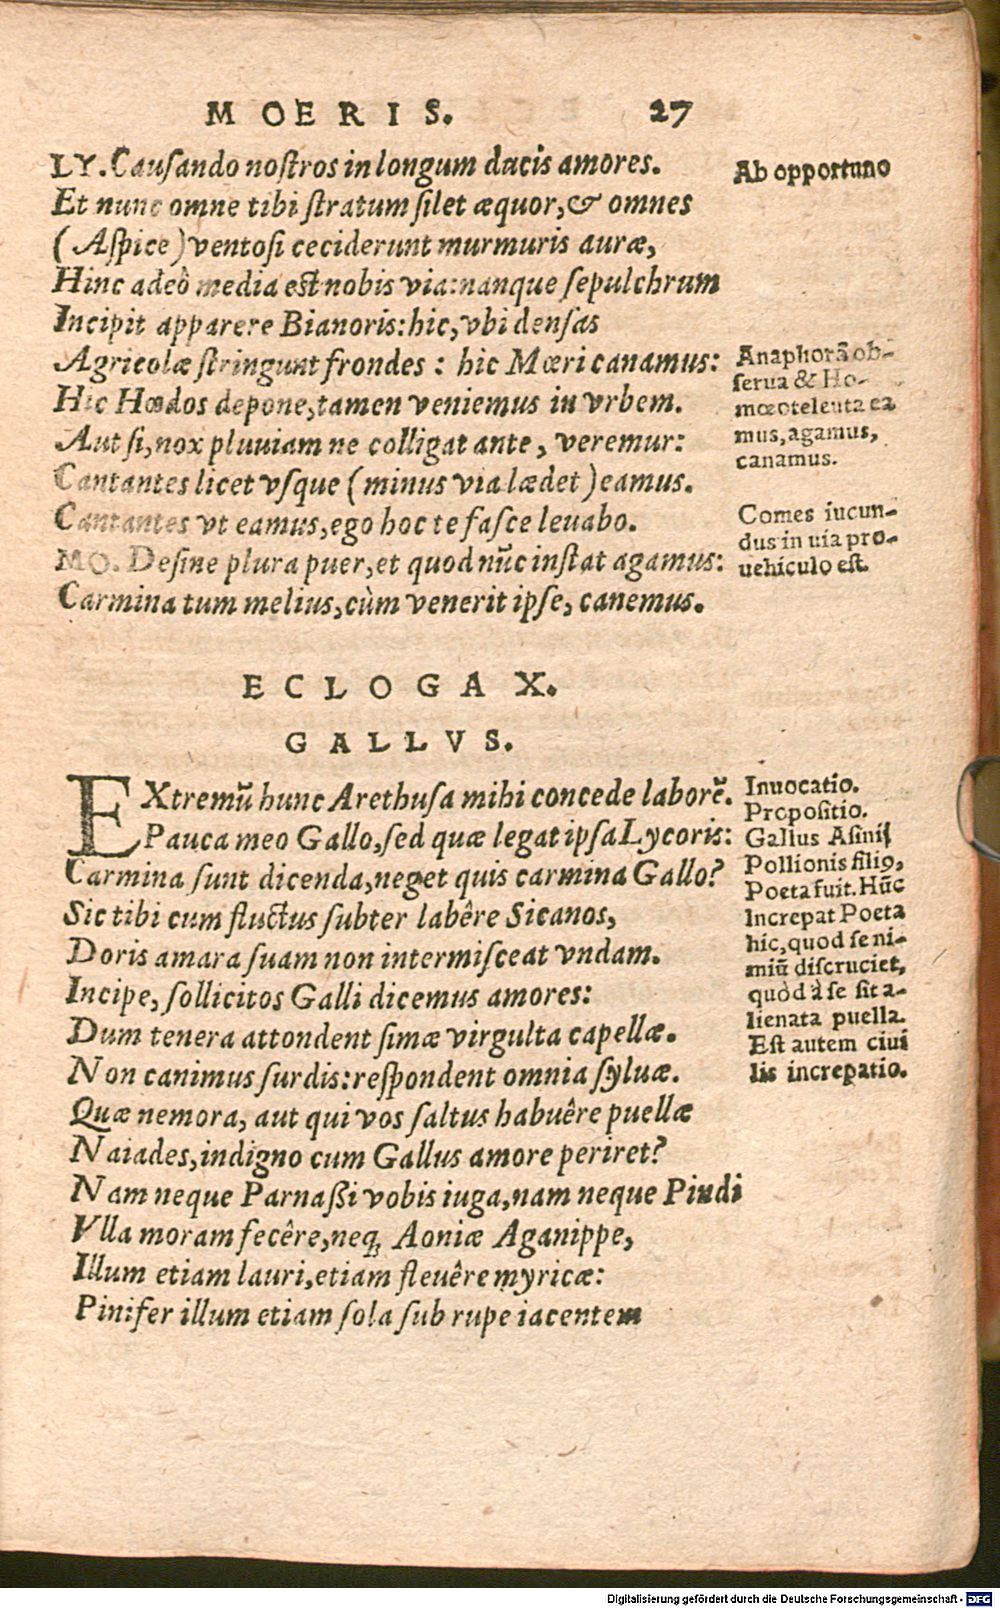 MOERIS. 27
LY. Causando nostros in longum ducis amores.
Et nunc omne tibi stratum silet æquor, & omnes
(Aspice) ventosi ceciderunt murmuris auræ,
Hinc adeò media est nobis via: nanque sepulchrum
Incipit apparere Bianoris: hic, vbi densas
Agricolæ stringunt frondes: hic Mœri canamus:
Hic Hœdos depone, tamen veniemus in vrbem.
Aut si, nox pluuiam ne colligat ante, veremur:
Cantantes licet vsque (minus via lædet) eamus.
Cantantes vt eamus, ego hoc te fasce leuabo.
MO. Desine plura puer, et quod nũc instat agamus:
Carmina tum melius, cùm venerit ipse, canemus.
Ab opportuno
Anaphorã ob-
serua & Ho-
mœoteleuta ea
mus, agamus,
canamus.
Comes iucun-
dus in uia pro-
uehiculo est.
ECLOGA X.
GALLVS.
EXtremũ hunc Arethusa mihi concede laborẽ.
Pauca meo Gallo, sed quæ legat ipsa Lycoris:
Carmina sunt dicenda, neget quis carmina Gallo?
Sic tibi cum fluctus subter labêre Sicanos,
Doris amara suam non intermisceat vndam.
Incipe, sollicitos Galli dicemus amores:
Dum tenera attondent simæ virgulta capellæ.
Non canimus surdis: respondent omnia syluæ.
Quæ nemora, aut qui vos saltus habuêre puellæ
Naiades, indigno cum Gallus amore periret?
Nam neque Parnaßi vobis iuga, nam neque Pindi
Vlla moram fecêre, neq; Aoniæ Aganippe,
Illum etiam lauri, etiam fleuêre myricæ:
Pinifer illum etiam sola sub rupe iacentem
Inuocatio.
Propositio.
Gallus Asinij
Pollionis filiꝰ,
Poeta fuit. Hũc
Increpat Poeta
hic, quod se ni-
miũ discruciet,
quòd à se sit a-
lienata puella.
Est autem ciui
lis increpatio.
Digitalisierung gefördert durch die Deutsche Forschungsgemeinschaft - DFG